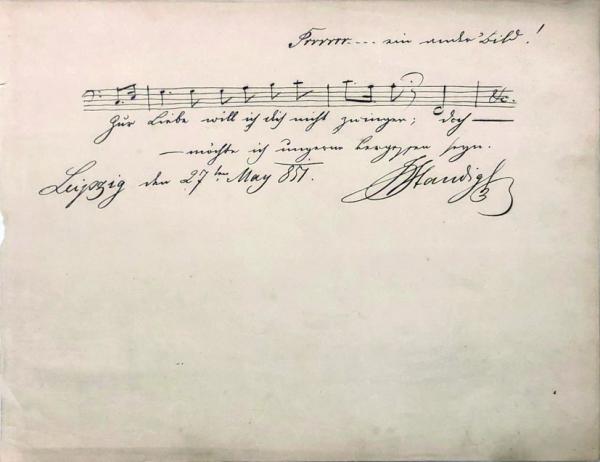 Frrrrr.... ein ander Bild!
&c.
Zur Liebe will ich dich nicht zwingen; doch —
— möchte ich ungerne vergessen seyn.
Leipzig den 27ten May 851.
JStaudigl